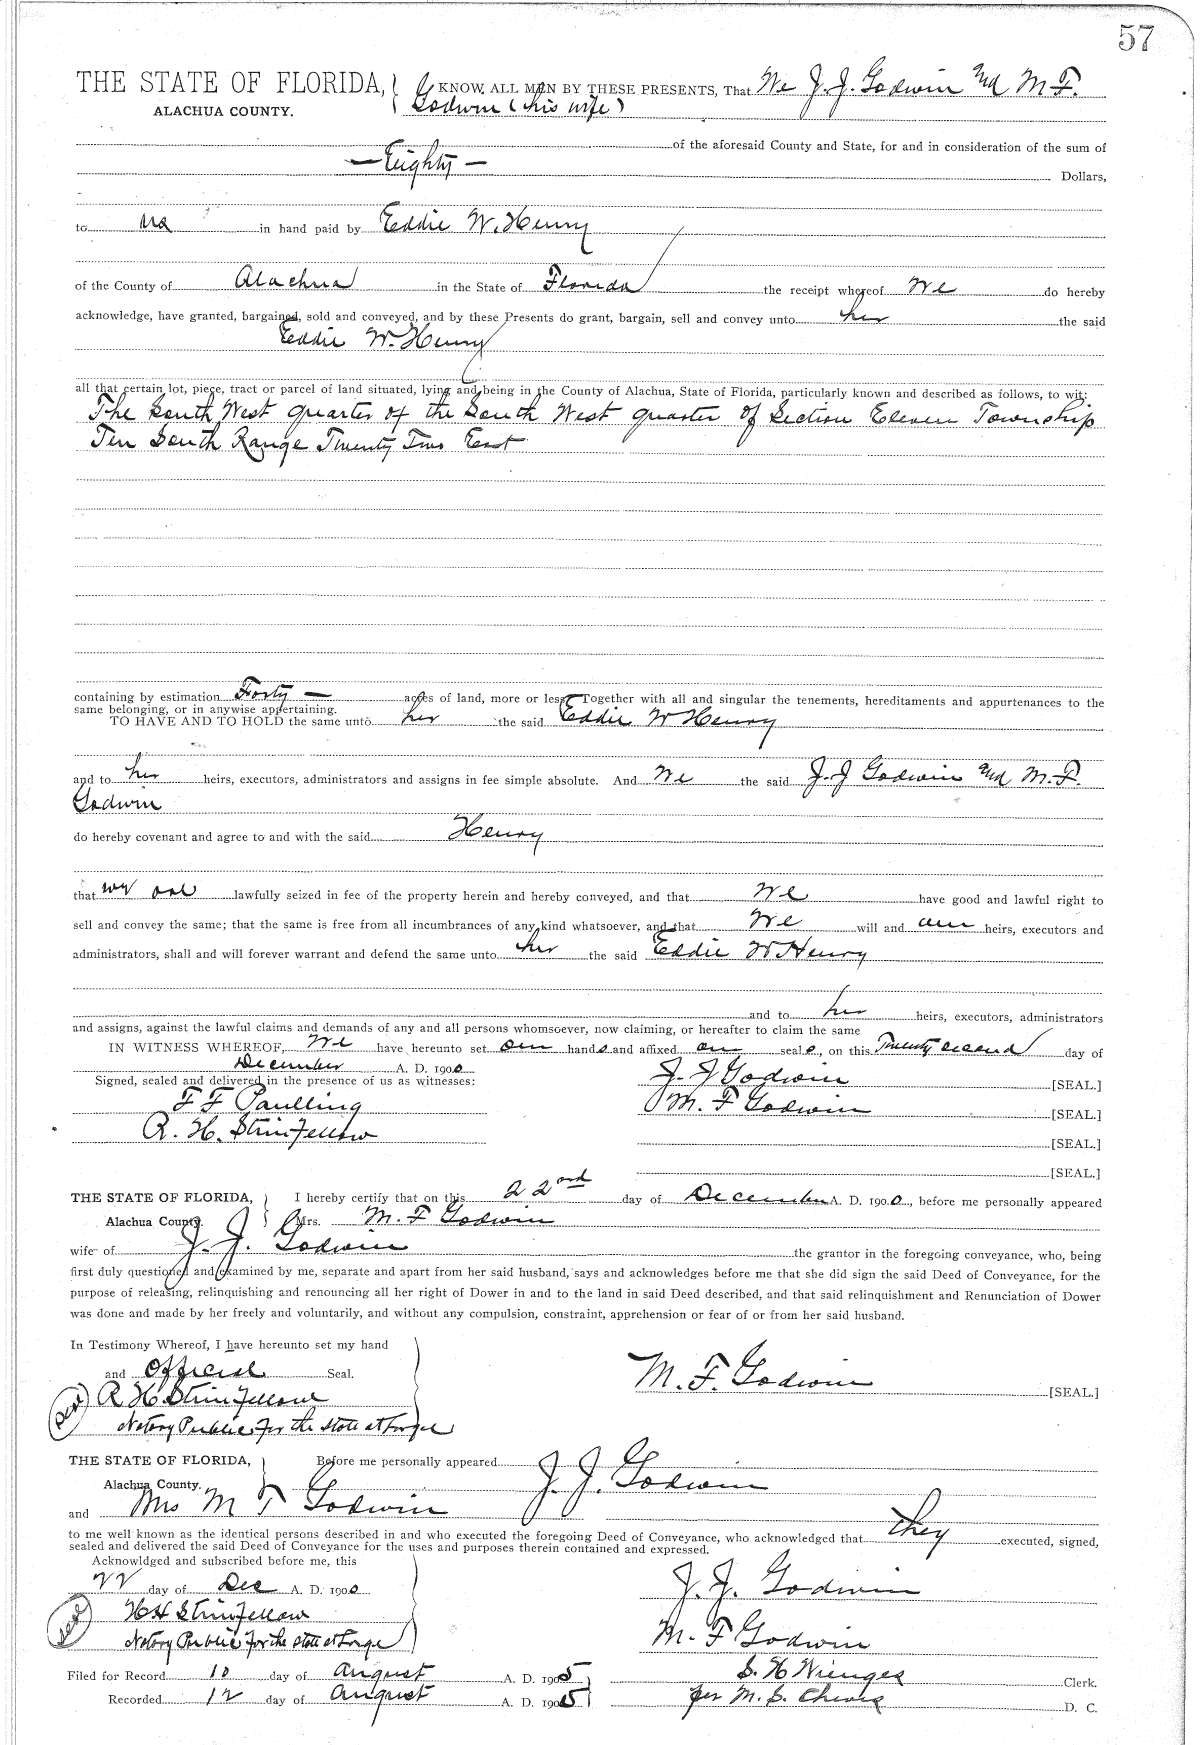 57
THE STATE OF FLORIDA, KNOW ALL MEN BY THESE PRESENTS, That We J. J. Godwin and M. F.
ALACHUA COUNTY. Godwin (his wife)
of the aforesaid County and State, for and in consideration of the sum of
— Eighty — Dollars,
to us in hand paid by Eddie W. Henry
of the County of Alachua in the State of Florida the receipt whereof We do hereby
acknowledge, have granted, bargained, sold and conveyed, and by these Presents do grant, bargain, sell and convey unto her the said
Eddie W. Henry
all that certain lot, piece, tract or parcel of land situated, lying and being in the County of Alachua, State of Florida, particularly known and described as follows, to wit:
The South West quarter of the South West quarter of Section Eleven Township
Ten South Range Twenty Two East
containing by estimation Forty — acres of land, more or less. Together with all and singular the tenements, hereditaments and appurtenances to the
same belonging, or in anywise appertaining.
TO HAVE AND TO HOLD the same unto her the said Eddie W Henry
and to her heirs, executors, administrators and assigns in fee simple absolute. And We the said J. J Godwin and M. F.
Godwin
do hereby covenant and agree to and with the said Henry
that we are lawfully seized in fee of the property herein and hereby conveyed, and that We have good and lawful right to
sell and convey the same; that the same is free from all incumbrances of any kind whatsoever, and that We will and our heirs, executors and
administrators, shall and will forever warrant and defend the same unto her the said Eddie W Henry
and to her heirs, executors, administrators
and assigns, against the lawful claims and demands of any and all persons whomsoever, now claiming, or hereafter to claim the same
IN WITNESS WHEREOF, We have hereunto set our hands and affixed our seals, on this Twenty second day of
December A. D. 1900
Signed, sealed and delivered in the presence of us as witnesses: J. J Godwin [SEAL.]
F F Paulling M. F Godwin [SEAL.]
R. H. Strinfellow [SEAL.]
[SEAL.]
THE STATE OF FLORIDA, I hereby certify that on this 22nd day of December A. D. 1900, before me personally appeared
Alachua County. Mrs. M. F Godwin
wife of J. J. Godwin the grantor in the foregoing conveyance, who, being
first duly questioned and examined by me, separate and apart from her said husband, says and acknowledges before me that she did sign the said Deed of Conveyance, for the
purpose of releasing, relinquishing and renouncing all her right of Dower in and to the land in said Deed described, and that said relinquishment and Renunciation of Dower
was done and made by her freely and voluntarily, and without any compulsion, constraint, apprehension or fear of or from her said husband.
In Testimony Whereof, I have hereunto set my hand
and Official Seal. M. F. Godwin [SEAL.]
Seal R H Strinfellow
Notary Public for the State at Large
THE STATE OF FLORIDA, Before me personally appeared J. J. Godwin
Alachua County.
and Mrs M F Godwin
to me well known as the identical persons described in and who executed the foregoing Deed of Conveyance, who acknowledged that they executed, signed,
sealed and delivered the said Deed of Conveyance for the uses and purposes therein contained and expressed.
Acknowldged and subscribed before me, this
22 day of Dec A. D. 1900 J. J. Godwin
Seal Strinfellow
Notary Public for the State at Large M. F Godwin
Filed for Record 10 day of August A. D. 1905 S. H Wienges Clerk.
Recorded 12 day of August A. D. 1905 per M. S. Cheves D. C.